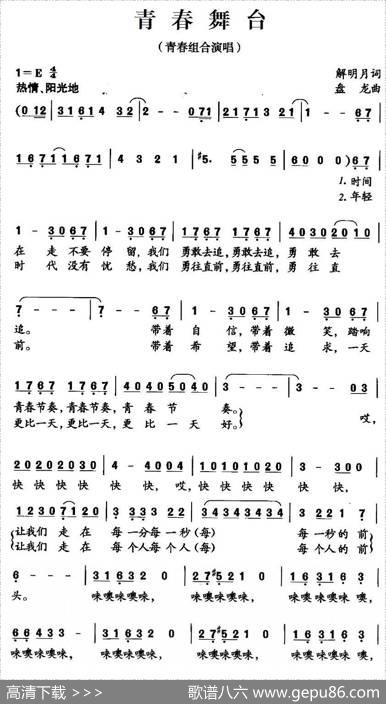 青春舞台
（青春组合演唱）
1=E 4/4
解明月词
热情、阳光地
盘龙曲
(0 12 | 31614 32 | 2 - - 071 | 21713 21 | 1 - - 67 |
1671 1671 | 4 3 2 1 | #5. 5 5 5 5 | 6 0 0 0 ) 67 |
1. 时间
2. 年轻
1 - 3067 | 1 - 3067 | 1767 1767 | 4030 2010 |
在 走 不要 停 留,我们 勇敢去追,勇敢去追, 勇 敢 去
时 代 没有 忧 愁,我们 勇往直前,勇往直前, 勇 往 直
7 - - - | 7 - - 67 | 1 - 3067 | 1 - 3067 |
追。 带着 自 信,带着 微 笑,踏响
前。 带着 希 望,带着 追 求,一天
1767 1767 | 4040 5040 | 3 - - - | 3 - - 03 |
青春节奏,青春节奏, 青 春 节 奏。 哎,
更比一天,更比一天, 更 比 一 天 好。
2020 2030 | 4 - 4004 | 1010 1020 | 3 - 300 |
快 快 快 快 快 快, 哎, 快 快 快 快 快 快,
1230 7120 | 3 - - - | 3 3 3 - 22 | 34343434 | 3 3 3 - 22 |
让我们 走 在 每 一分每一秒(每) 每 一秒的 前
让我们 走 在 每 个人每个人(每) 每 个人的 前
6 - - - | 31632 0 | 27#521 0 | 16316 3 |
头。 咪噢咪噢咪, 咪噢咪噢咪, 咪噢咪噢咪,
66433 - - | 31632 0 | 27#521 0 | 16316 3 |
咪噢咪噢咪, 咪噢咪噢咪, 咪噢咪噢咪, 咪噢咪噢咪,
高清下载 >>>
歌谱八六 www.gepu86.com